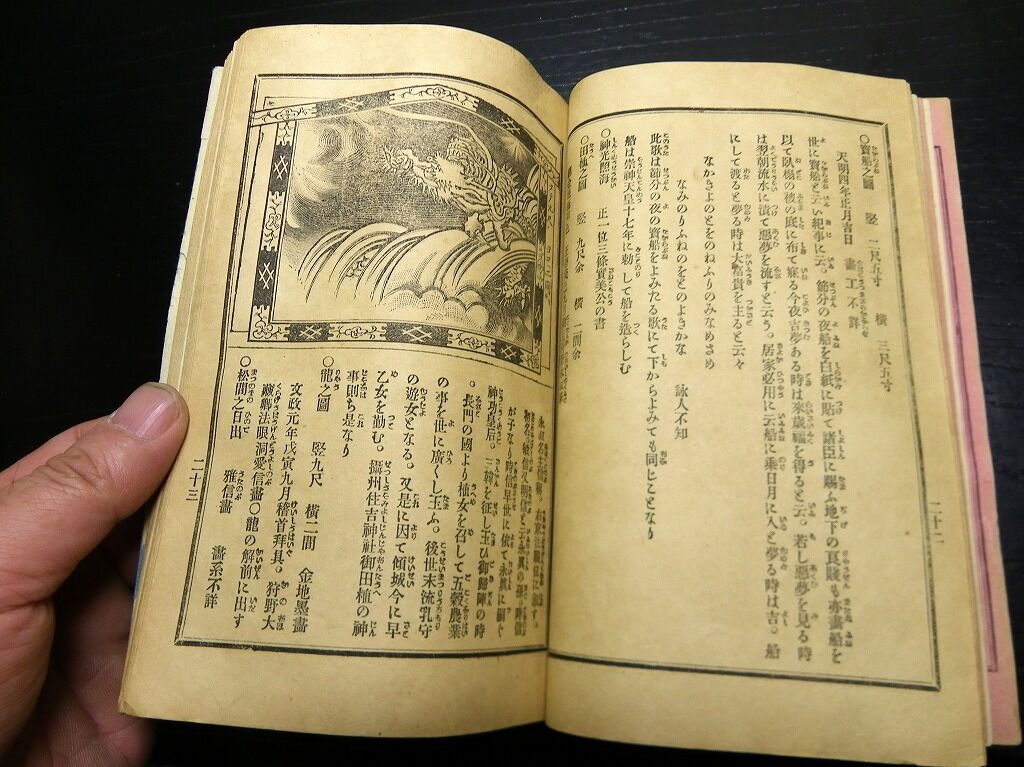 ○寶船之圖　竪　二尺五寸　橫　三尺五寸
天明四年正月吉日　畫工不詳
世に寶船と云い紀事に云。節分の夜船を白紙に貼て諸臣に賜ふ地下の良賤も亦畫船を
以て臥榻の彼の底に布て寐る今夜吉夢ある時は來歲福を得ると云。若し惡夢を見る時
は翌朝流水に漬て惡夢を流すと云う。居家必用に云船に乘日月に入と夢る時は吉。船
にして渡ると夢る時は大富貴を主ると云々
なかきよのとをのねふりのみなめさめ
なみのりふねのをとのよきかな　詠人不知
此歌は節分の夜の寶船をよみたる歌にて下からよみても同じことなり
船は崇神天皇十七年に勅して船を造らしむ
○神光照海　正一位三條實美公の書
○田植之圖　竪　九尺余　橫　二間余
二十二
神功皇后。三韓を征し玉ひ御歸陣の時
。長門の國より植女を召して五穀農業
の事を世に廣くし玉ふ。後世末流乳守
の遊女となる。又是に因て傾城今に早
乙女を勤む。攝州住吉神社御田植の神
事則ち是なり
○龍之圖　竪九尺　橫二間　金地墨畫
文政元年戊寅九月稽首拜具。狩野大
藏卿法眼洞愛信畫○龍の解前に出す
○松間之日出　雅信畫　畫系不詳
二十三